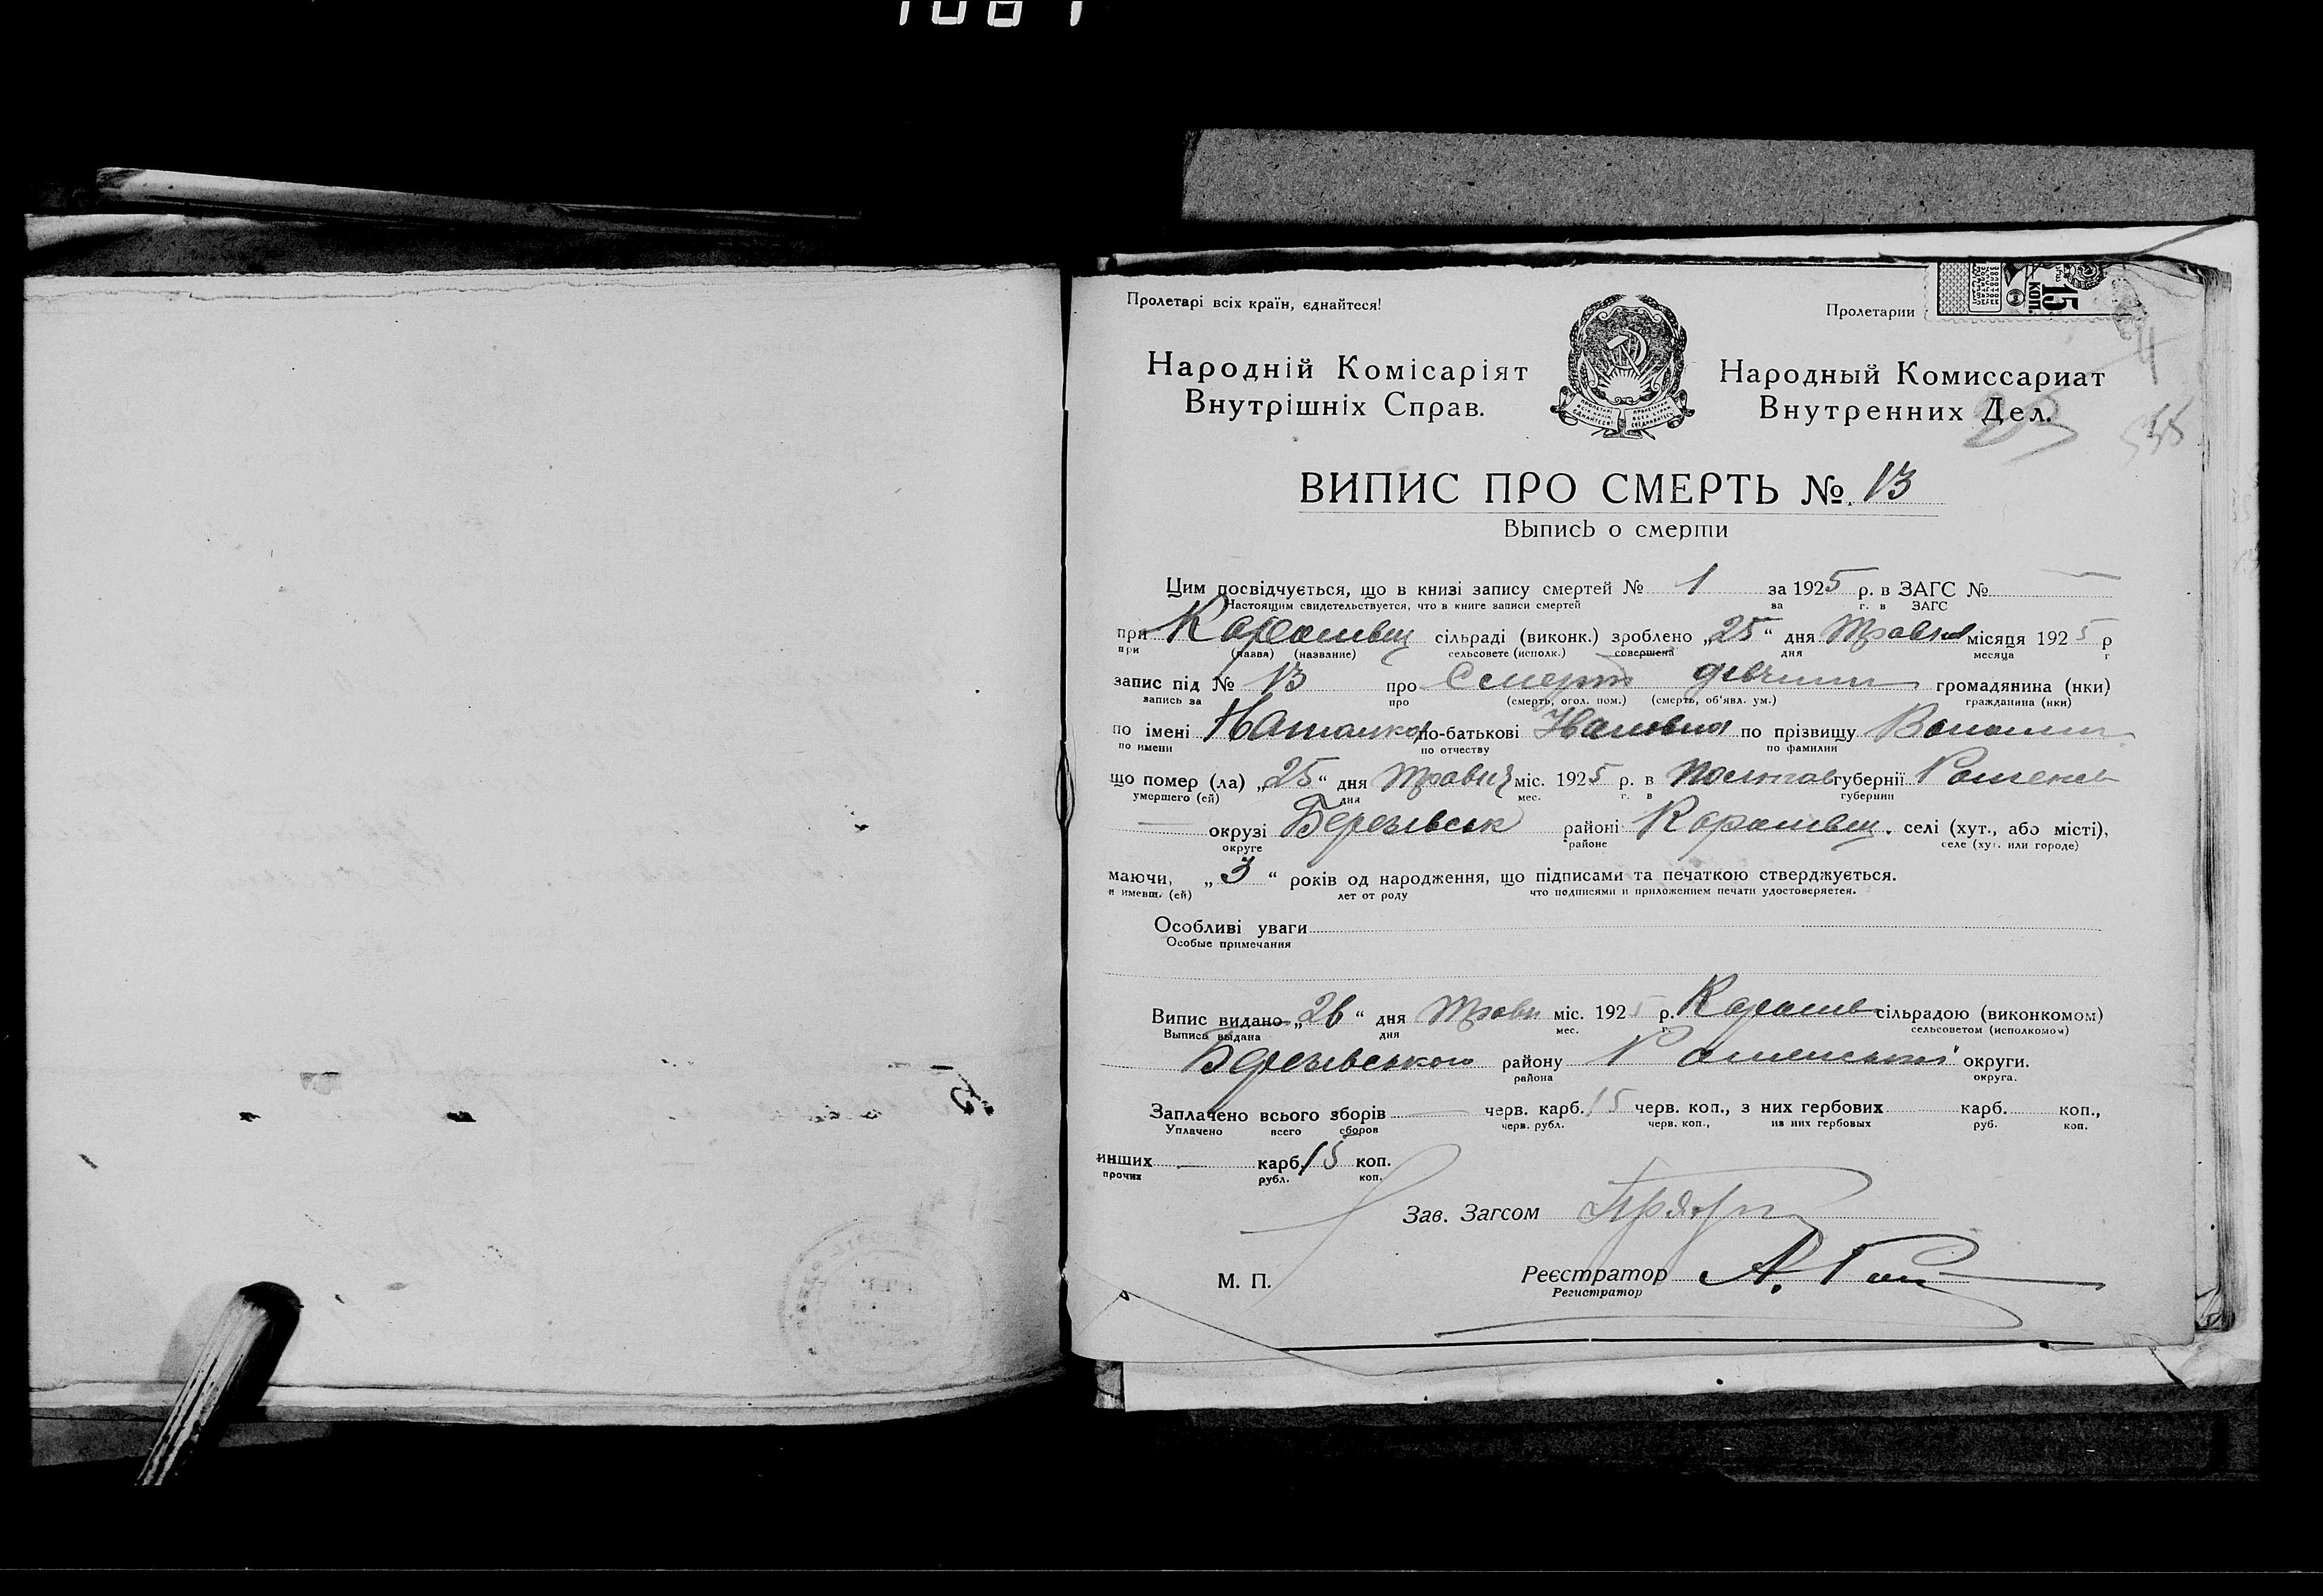 Пролетарі всіх країн, єднайтеся!
Пролетарии
15 коп.
Народній Комісаріят
Внутрішніх Справ.
Народный Комиссариат
Внутренних Дел.
ВИПИС ПРО СМЕРТЬ № 13
Выпись о смерти
Цим посвідчується, що в книзі запису смертей № 1 за 1925 р. в ЗАГС №
Настоящим свидетельствуется, что в книге записи смертей за г. в ЗАГС
при сільраді (виконк.) зроблено „25“ дня Травня місяця 1925 р
при (назва) (название) сельсовете (исполк.) совершена дня месяца г
запис під № 13 про Смерть громадянина (нки)
запись за про (смерть, огол. пом.) (смерть, об'явл. ум.) гражданина (нки)
по імені Наталка по-батькові Івановна по прізвищу
по имени по отчеству по фамилии
що помер (ла) „25“ дня Травня міс. 1925 р. в Полтав губернії Роменск
умершего (ей) дня мес. г. в губернии
округі Березівськ районі селі (хут., або місті),
округе районе селе (хут. или городе)
маючи, „3“ років од народження, що підписами та печаткою стверджується.
и имевш. (ей) лет от роду что подписями и приложением печати удостоверяется.
Особливі уваги
Особые примечания
Випис видано „26“ дня Травн міс. 1925 р. сільрадою (виконкомом)
Выпись выдана дня мес. г. сельсоветом (исполкомом)
Березівського району Роменської округи.
района округа.
Заплачено всього зборів черв. карб. 15 черв. коп., з них гербових карб. коп.,
Уплачено всего сборов черв. рубл. черв. коп., из них гербовых руб. коп.
инших карб. 15 коп.
прочих рубл. коп.
Зав. Загсом
М. П. Реєстратор А.
Регистратор